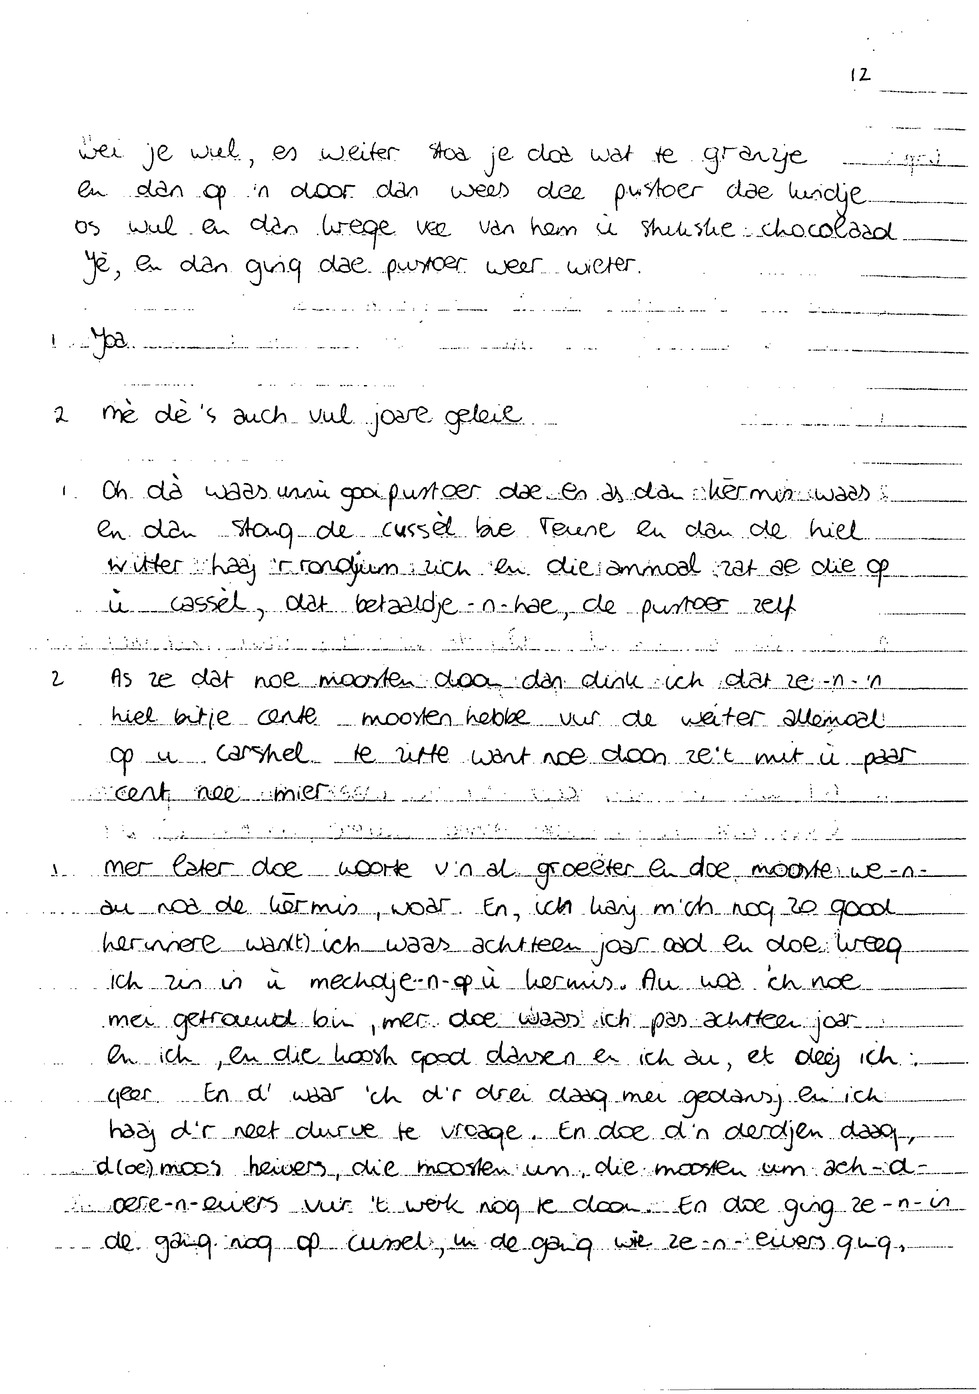 12
wei je wul, es weiter stoa je doa wat te granzje
en dan op 'n door dan wees dee pustoer dae kindje
os wul en dan krege vee van hem ù shtukske chocolaad
Yè, en dan ging dae pustoer weer wieter.
1 Yoa.
2 mè dè's auch vul joare geleie
1. Oh dà waas unnu gooi pustoer dae en as dan kērmis waas
en dan stong de cussèl bie Teune en dan de hiel
witter haaj 'r rondjium zich en die ammoal zat ae die op
ù cassèl, dat betaaldje-n-hae, de pustoer zelf
2 As ze dat noe moosten doon dan dink ich dat ze-n-'n
hiel bitje cente moosten hebbe vur de weiter allemoal
op u carshel te zitte want noe doon ze't mit ù paar
cent nee mier
1. mer later doe woorte v'n al groeëter en doe mooste we-n-
au noa de kērmis, woar. En, ich kan m'ch nog zo good
herinnere wan(t) ich waas achtteen joar oad en doe kreeg
ich zin in ù mechdje-n-op ù kermis. Au woa 'ch noe
mei getrouwd bin, mer doe waas ich pas achtteen joar
en ich, en die koosh good dansen en ich au, et deej ich
geer. En d' waar 'ch d'r drei daag mei gedansj en ich
haaj d'r neet durve te vroage. En doe d'n derdjen daag,
d(oe) moos heivers, die moosten um, die moosten um ach-d-
oere-n-eivers vur 't werk nog te doon. En doe ging ze-n-in
de gang nog op cussel, in de gang wie ze-n-eivers ging,